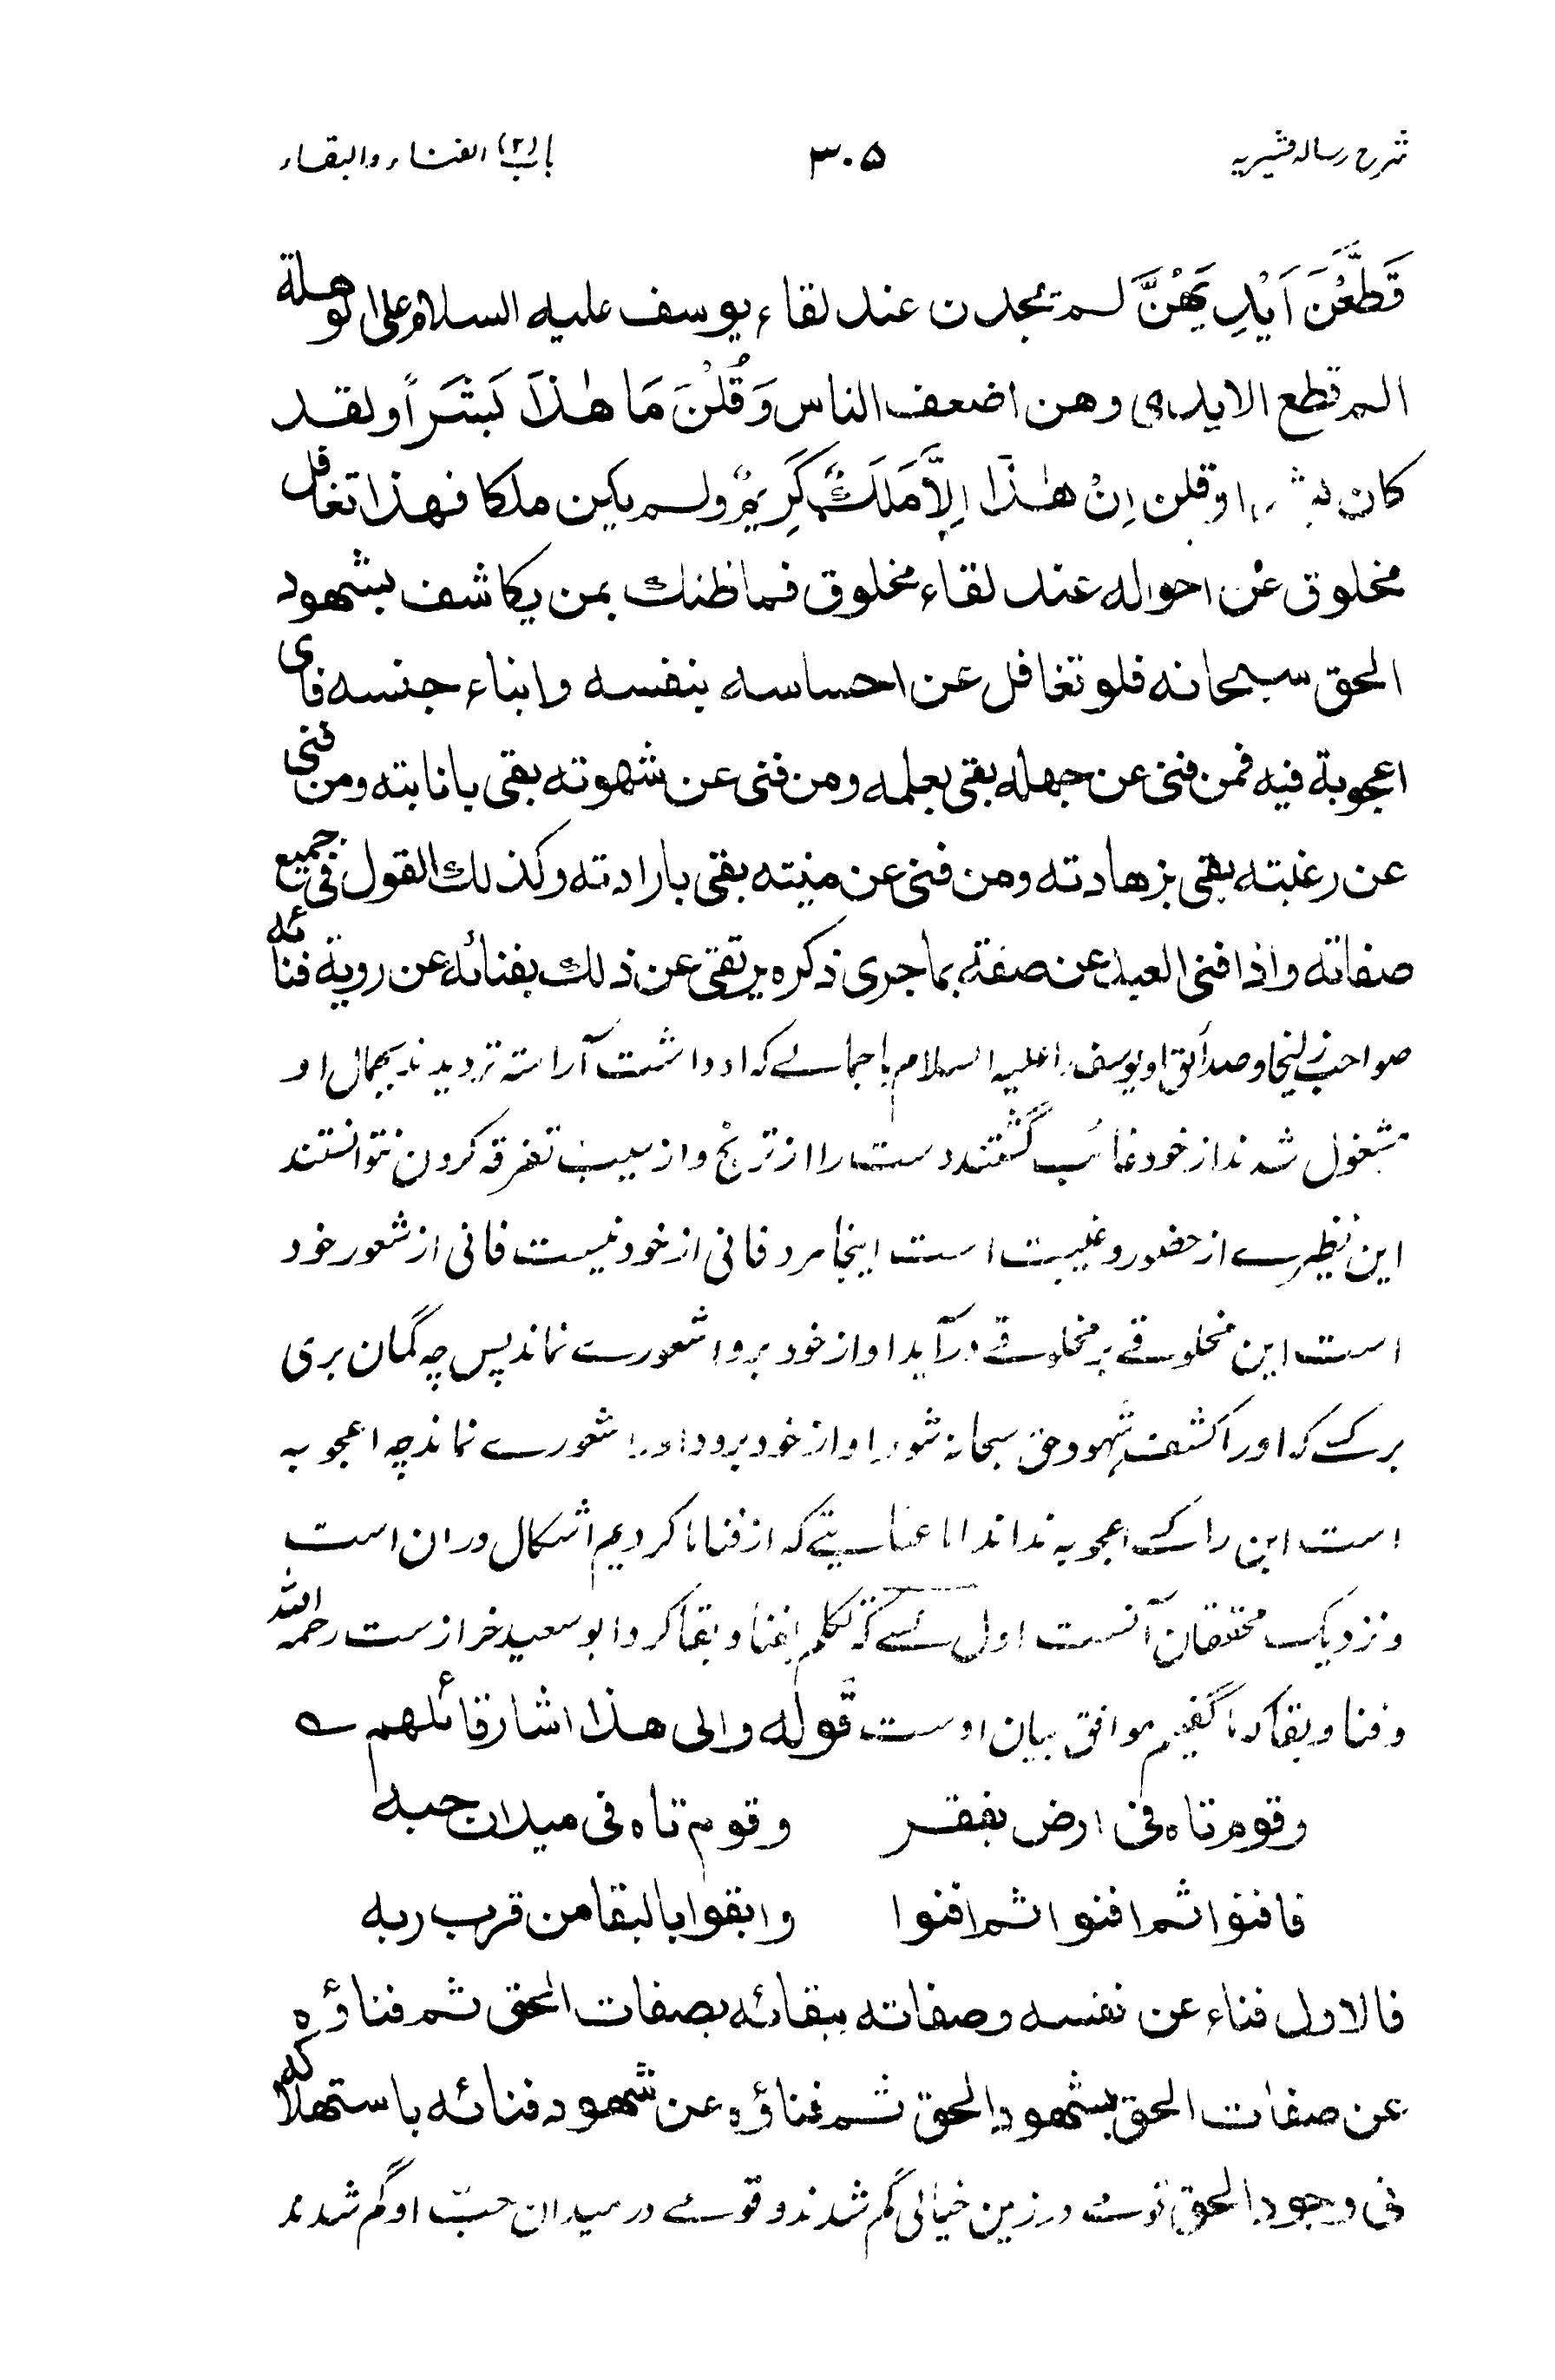 شرح رسالہ قشیریہ
۳۰۵
باب (۲) الفناء والبقاء
قَطَّعْنَ اَیْدِیَهُنَّ لم یجدن عند لقاء یوسف علیه السلام علی الوهلة
الم قطع الایدی وهن اضعف الناس وَقُلْنَ مَا هٰذَا بَشَرًا ولقد
کان بشرا وقلن اِنْ هٰذَا اِلَّا مَلَكٌ کَرِیْمٌ ولم یکن ملکا فهذا تغافل
مخلوق عن احواله عند لقاء مخلوق فما ظنك بمن یکاشف بشهود
الحق سبحانه فلو تغافل عن احساسه بنفسه وابناء جنسه فای
اعجوبة فیه فمن فنی عن جهله بقی بعلمه ومن فنی عن شهوته بقی بانابته ومن فنی
عن رغبته بقی بزهادته ومن فنی عن منیته بقی بارادته وکذلك القول فی جمیع
صفاته واذا فنی العبد عن صفة بما جری ذکره یرتقی عن ذلك بفنائه عن رویة فنائه
صواحب زلیخا وصدائق او یوسف را علیه السلام با جمالے که او داشت آراسته تر دیدند بجمال او
مشغول شدند از خود غائب گشتند دست را از ترنج و از سیب تفرقه کردن نتوانستند
این نظیرے از حضور و غیبت است اینجا مرد فانی از خود نیست فانی از شعور خود
است این مخلوقے بر مخلوقے درآید او از خود برود شعورے نماند پس چه گمان بری
برکسے که او را کشف شهود حق سبحانه شود او از خود برود اورا شعورے نماند چه اعجوبه
است این را کسے اعجوبه نداند اما عنایتے که از فنا ما کردیم اشکال در ان است
و نزدیک محققان آنست اول کسے که تکلم بفنا و بقا کرد ابو سعید خراز ست رحمه الله
و فنا و بقا که ما گفتیم موافق بیان اوست قوله والی هذا اشار قائلهم ؎
وقوم تاه فی ارض بقفر وقوم تاه فی میدان حبه
فافنوا ثم افنوا ثم افنوا وابقوا بالبقا من قرب ربه
فالاول فناء عن نفسه وصفاته ببقائه بصفات الحق ثم فناؤه
عن صفات الحق بشهود الحق ثم فناؤه عن شهود فنائه باستهلاکه
فی وجود الحق قومے در زمین خیالی گم شدند و قومے در میدان حبّ او گم شدند